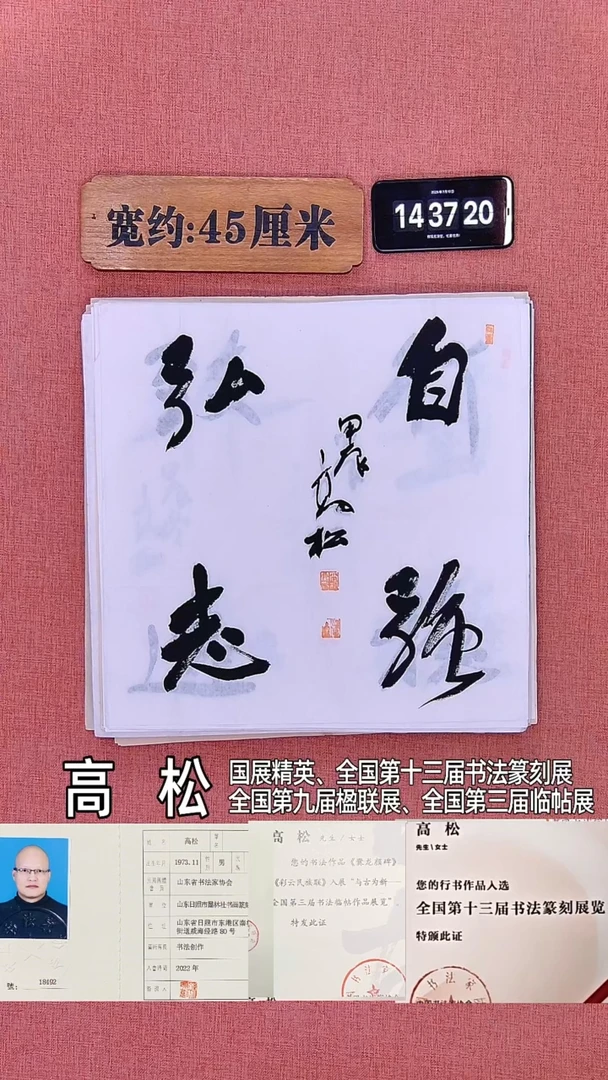 宽约:45厘米
14 37 20
自强
弘志
甲辰高松
高 松
国展精英、全国第十三届书法篆刻展
全国第九届楹联展、全国第三届临帖展
號: 18492
姓名 高松
1973.11 男
山东省书法家协会
山东省日照市东港区
街道威海径路80号
书法创作
2022年
高 松 先生/女士
您的书法作品《爨龙颜碑》
《彩云民族联》入展“与古为新
全国第三届书法临帖作品展览”,
特发此证
高 松
先生\女士
您的行书作品入选
全国第十三届书法篆刻展览
特颁此证